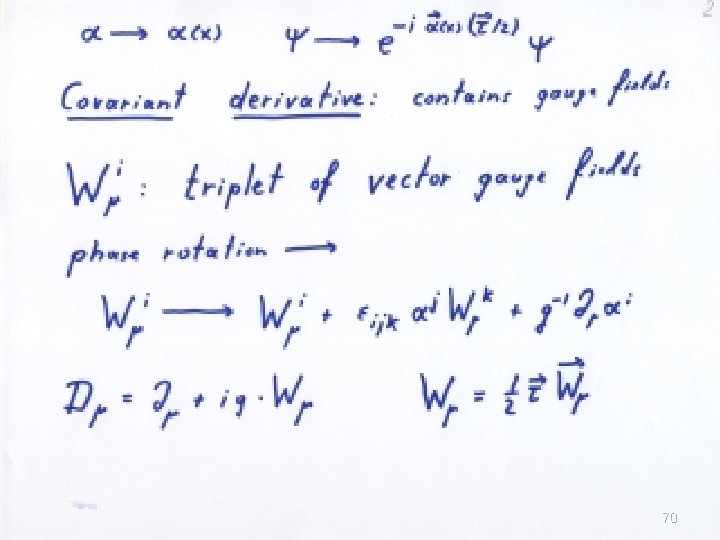 2
α → α(x)   ψ → e^{-i \vec{α}(x)(\vec{τ}/2)} ψ
Covariant derivative: contains gauge fields
W_μ^i : triplet of vector gauge fields
phase rotation →
W_μ^i → W_μ^i + ε_{ijk} α^j W_μ^k + g^{-1} ∂_μ α^i
D_μ = ∂_μ + ig · W_μ   W_μ = \frac{1}{2} \vec{τ} \vec{W_μ}
70